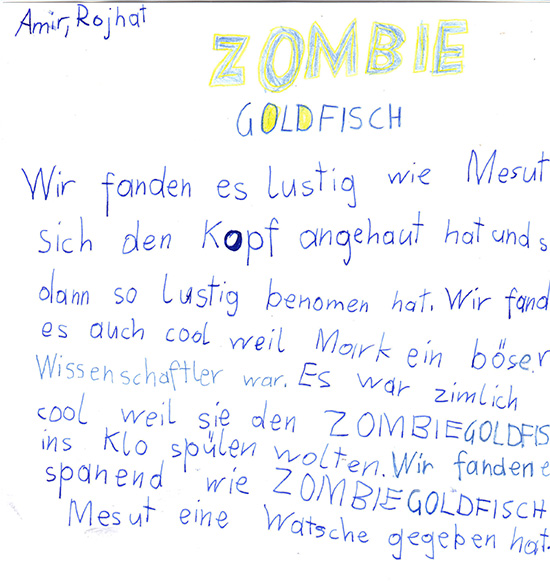 Amir, Rojhat
ZOMBIE
GOLDFISCH
Wir fanden es lustig wie Mesut
sich den Kopf angehaut hat und s
dann so lustig benomen hat. Wir fand
es auch cool weil Mark ein böser
Wissenschaftler war. Es war zimlich
cool weil sie den ZOMBIEGOLDFIS
ins Klo spülen wolten. Wir fanden e
spanend wie ZOMBIEGOLDFISCH
Mesut eine Watsche gegeben hat.